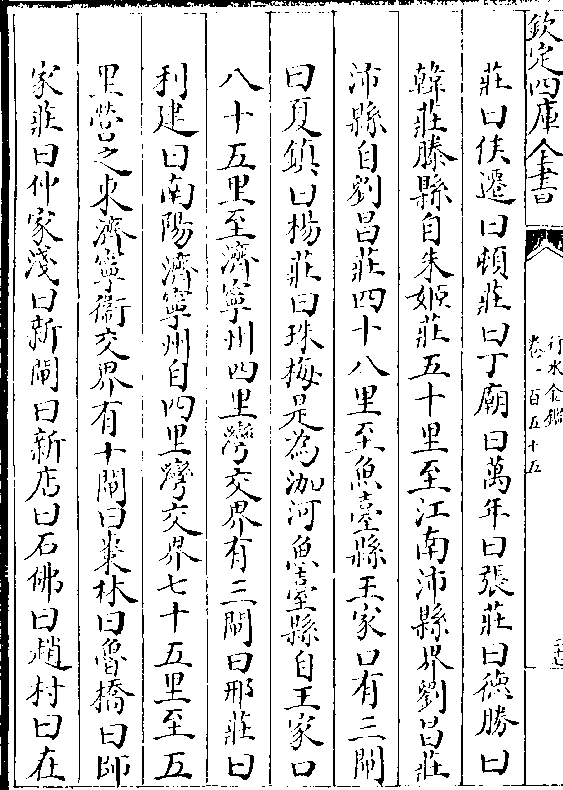 欽定四庫全書
行水金鑑
卷一百五十五
莊曰侯遷曰頓莊曰丁廟曰萬年曰張莊曰德勝曰
韓莊滕縣自朱姬莊五十里至江南沛縣界劉昌莊
沛縣自劉昌莊四十八里至魚臺縣王家口有三閘
曰夏鎮曰楊莊曰珠梅是為泇河魚臺縣自王家口
八十五里至濟寧州四里灣交界有三閘曰邢莊曰
利建曰南陽濟寧州自四里灣交界七十五里至五
里營之東濟寧衞交界有十閘曰棗林曰魯橋曰師
家莊曰仲家淺曰新閘曰新店曰石佛曰趙村曰在